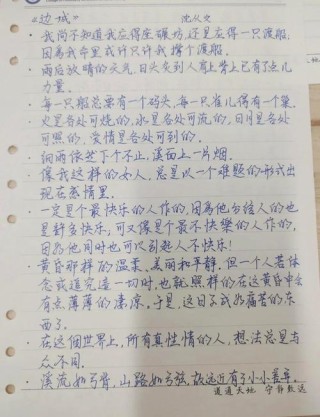 《边城》 沈从文
·我尚不知道我应得座碾坊,还是应得一只渡船,
因为我命里或许只许我撑个渡船.
·雨后放晴的天气,日头炙到人肩上背上已有了点儿
力量.
·每一只船总要有一个码头,每一只雀儿得有一个巢.
·火是各处可烧的,水是各处可流的,日月是各处
可照的,爱情是各处可到的.
·细雨依然下个不止,溪面上一片烟.
·像我这样的女人,总是以一个难题的形式出
现在感情里.
·一定是个最快乐的人作的,因为他分给人的也
是许多快乐,可又像是个最不快樂的人作的,
因为他同时也可以引起人不快乐!
·黄昏那样的温柔、美丽和平静.但一个人若体
念或追究這一切时,也就照样的在这黄昏中会
有点薄薄的凄凉.于是,这日子成为痛苦的东
西了.
·在这個世界上,所有真性情的人,想法总是与
众不同.
·溪流如弓背,山路如弓弦,故远近有了小小差异.
道通天地 守静致远